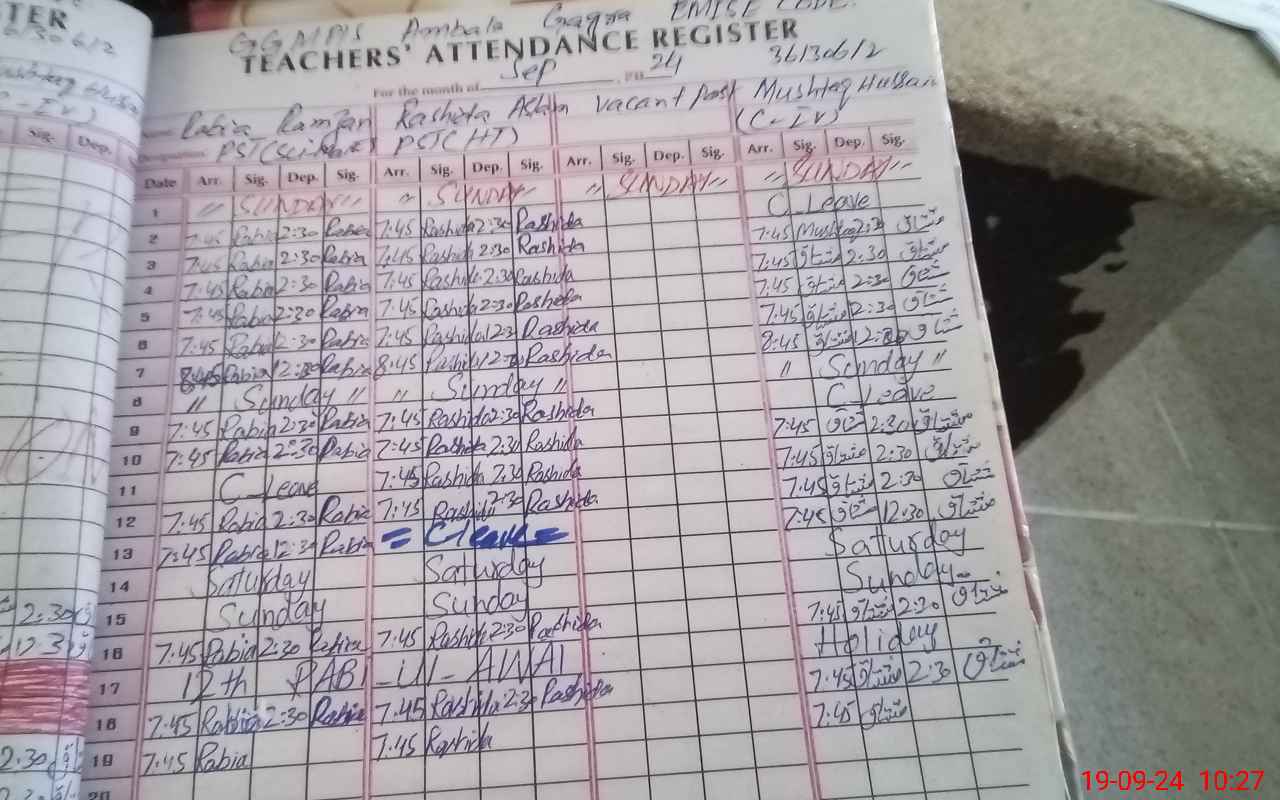 GGMPIS Ambala Gagra EMISE CODE.
TEACHERS' ATTENDANCE REGISTER 36130612
For the month of Sep , 20 24
Rabia Ramzan Rashida Aslam Vacant Post Mushtaq Hussain
PST PST(HT) (C-IV)
Date Arr. Sig. Dep. Sig. Arr. Sig. Dep. Sig. Arr. Sig. Dep. Sig. Arr. Sig. Dep. Sig.
1 " SUNDAY " " SUNDAY " " SUNDAY " " SUNDAY "
2 7:45 Rabia 2:30 Rabia 7:45 Rashida 2:30 Rashida C_Leave
3 7:45 Rabia 2:30 Rabia 7:45 Rashida 2:30 Rashida 7:45 Mushtaq 2:30 مشتاق
4 7:45 Rabia 2:30 Rabia 7:45 Rashida 2:30 Rashida 7:45 مشتاق 2:30 مشتاق
5 7:45 Rabia 2:30 Rabia 7:45 Rashida 2:30 Rashida 7:45 مشتاق 2:30 مشتاق
6 7:45 Rabia 2:30 Rabia 7:45 Rashida 12:30 Rashida 7:45 مشتاق 2:30 مشتاق
7 8:45 Rabia 12:30 Rabia 8:45 Rashida Rashida 8:45 مشتاق مشتاق
8 " Sunday " " Sunday " " Sunday "
9 7:45 Rabia 2:30 Rabia 7:45 Rashida 2:30 Rashida C_Leave
10 7:45 Rabia 2:30 Rabia 7:45 Rashida 2:30 Rashida 7:45 مشتاق 2:30 مشتاق
11 C_Leave 7:45 Rashida 2:30 Rashida 7:45 مشتاق 2:30 مشتاق
12 7:45 Rabia 2:30 Rabia 7:45 Rashida 2:30 Rashida 7:45 مشتاق 2:30 مشتاق
13 7:45 Rabia 12:30 Rabia = C leave = 7:45 مشتاق 12:30 مشتاق
14 Saturday Saturday Saturday
15 Sunday Sunday Sunday
16 7:45 Rabia 2:30 Rabia 7:45 Rashida 2:30 Rashida 7:45 مشتاق 2:30 مشتاق
17 12th RABI_Ul_AWAl Holiday
18 7:45 Rabia 2:30 Rabia 7:45 Rashida 2:30 Rashida 7:45 مشتاق 2:30 مشتاق
19 7:45 Rabia 7:45 Rashida 7:45 مشتاق
20
TER
Sig. Dep.
2:30
12:3
2:30
19-09-24 10:27